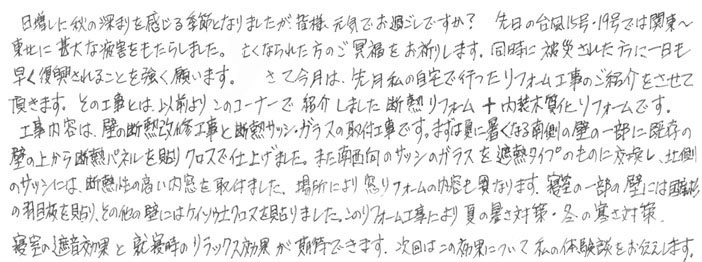 日増しに秋の深まりを感じる季節となりましたが、皆様、元気でお過ごしですか? 先日の台風15号・19号では関東〜
東北に甚大な被害をもたらしました。亡くなられた方のご冥福をお祈りします。同時に被災された方に一日も
早く復興されることを強く願います。 さて今月は、先月私の自宅で行ったリフォーム工事のご紹介をさせて
頂きます。その工事とは、以前よりこのコーナーで紹介しました断熱リフォーム+内装木質化リフォームです。
工事内容は、壁の断熱改修工事と断熱サッシ・ガラスの取付工事です。まずは夏に暑くなる南側の壁の一部に既存の
壁の上から断熱パネルを貼りクロスで仕上げました。また南西向のサッシのガラスを遮熱タイプのものに交換し、北側
のサッシには、断熱性の高い内窓を取付ました。場所により窓リフォームの内容も異なります。寝室の一部の壁には国産杉
の羽目板を貼り、その他の壁にはケイソウ土クロスを貼りました。このリフォーム工事により夏の暑さ対策・冬の寒さ対策・
寝室の遮音効果と就寝時のリラックス効果が期待できます。次回はこの効果について私の体験談をお伝えします。